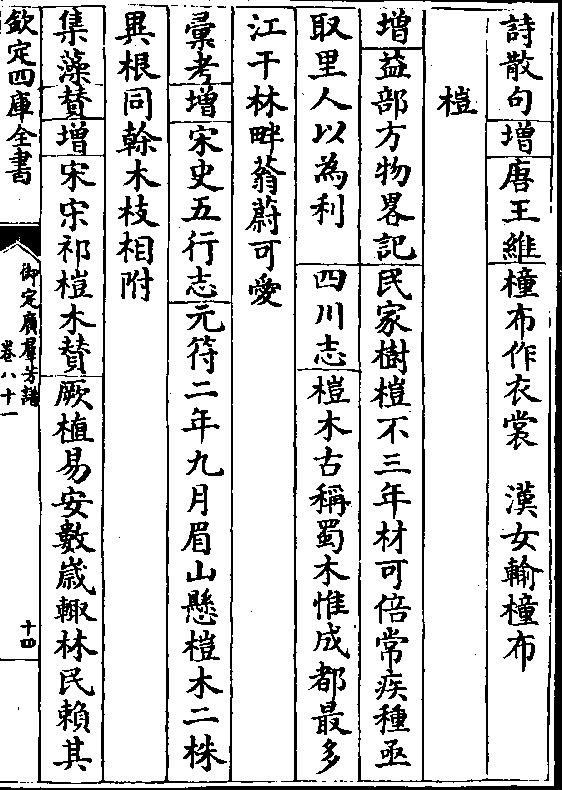 詩散句增唐王維橦布作衣裳　漢女輸橦布
榿
增益部方物畧記民家樹榿不三年材可倍常疾種亟
取里人以為利　四川志榿木古稱蜀木惟成都最多
江干林畔蓊蔚可愛
彚考增宋史五行志元符二年九月眉山懸榿木二株
異根同榦木枝相附
集藻贊增宋宋祁榿木贊厥植易安數歲輙林民賴其
欽定四庫全書
御定廣羣芳譜
卷八十一
十四